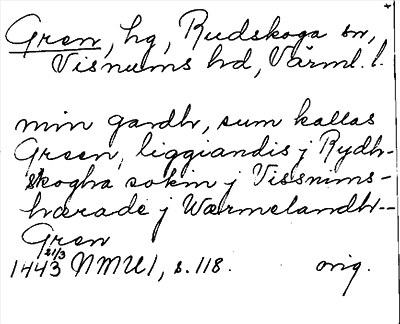 Gren, hg, Rudskoga sn,
Visnums hd, Värml. l.
min gardh, sum kallas
Green, liggiandis j Rydh-
skogha sokin j Vissnims-
hærade j Wærmelandh--
Gren
21/3
1443 NMU 1, s. 118. orig.